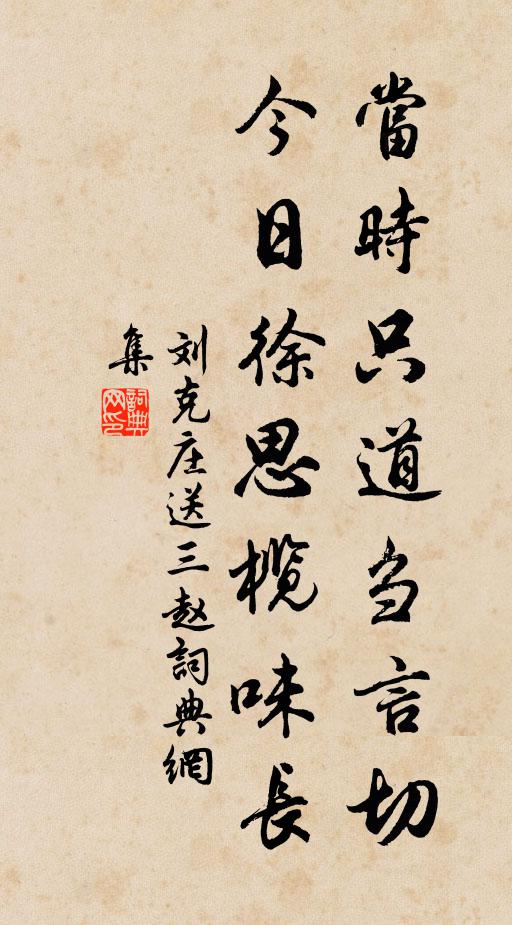 當時只道刍言切
今日徐思榄味長
刘克庄送三赵詞典網
集
詞典网印